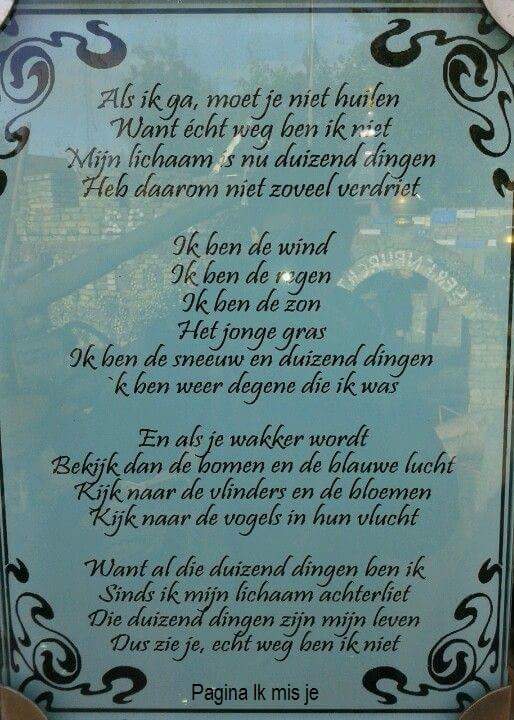 Als ik ga, moet je niet huilen
Want écht weg ben ik niet
Mijn lichaam is nu duizend dingen
Heb daarom niet zoveel verdriet
Ik ben de wind
Ik ben de regen
Ik ben de zon
Het jonge gras
Ik ben de sneeuw en duizend dingen
`k ben weer degene die ik was
En als je wakker wordt
Bekijk dan de bomen en de blauwe lucht
Kijk naar de vlinders en de bloemen
Kijk naar de vogels in hun vlucht
Want al die duizend dingen ben ik
Sinds ik mijn lichaam achterliet
Die duizend dingen zijn mijn leven
Dus zie je, echt weg ben ik niet
Pagina Ik mis je